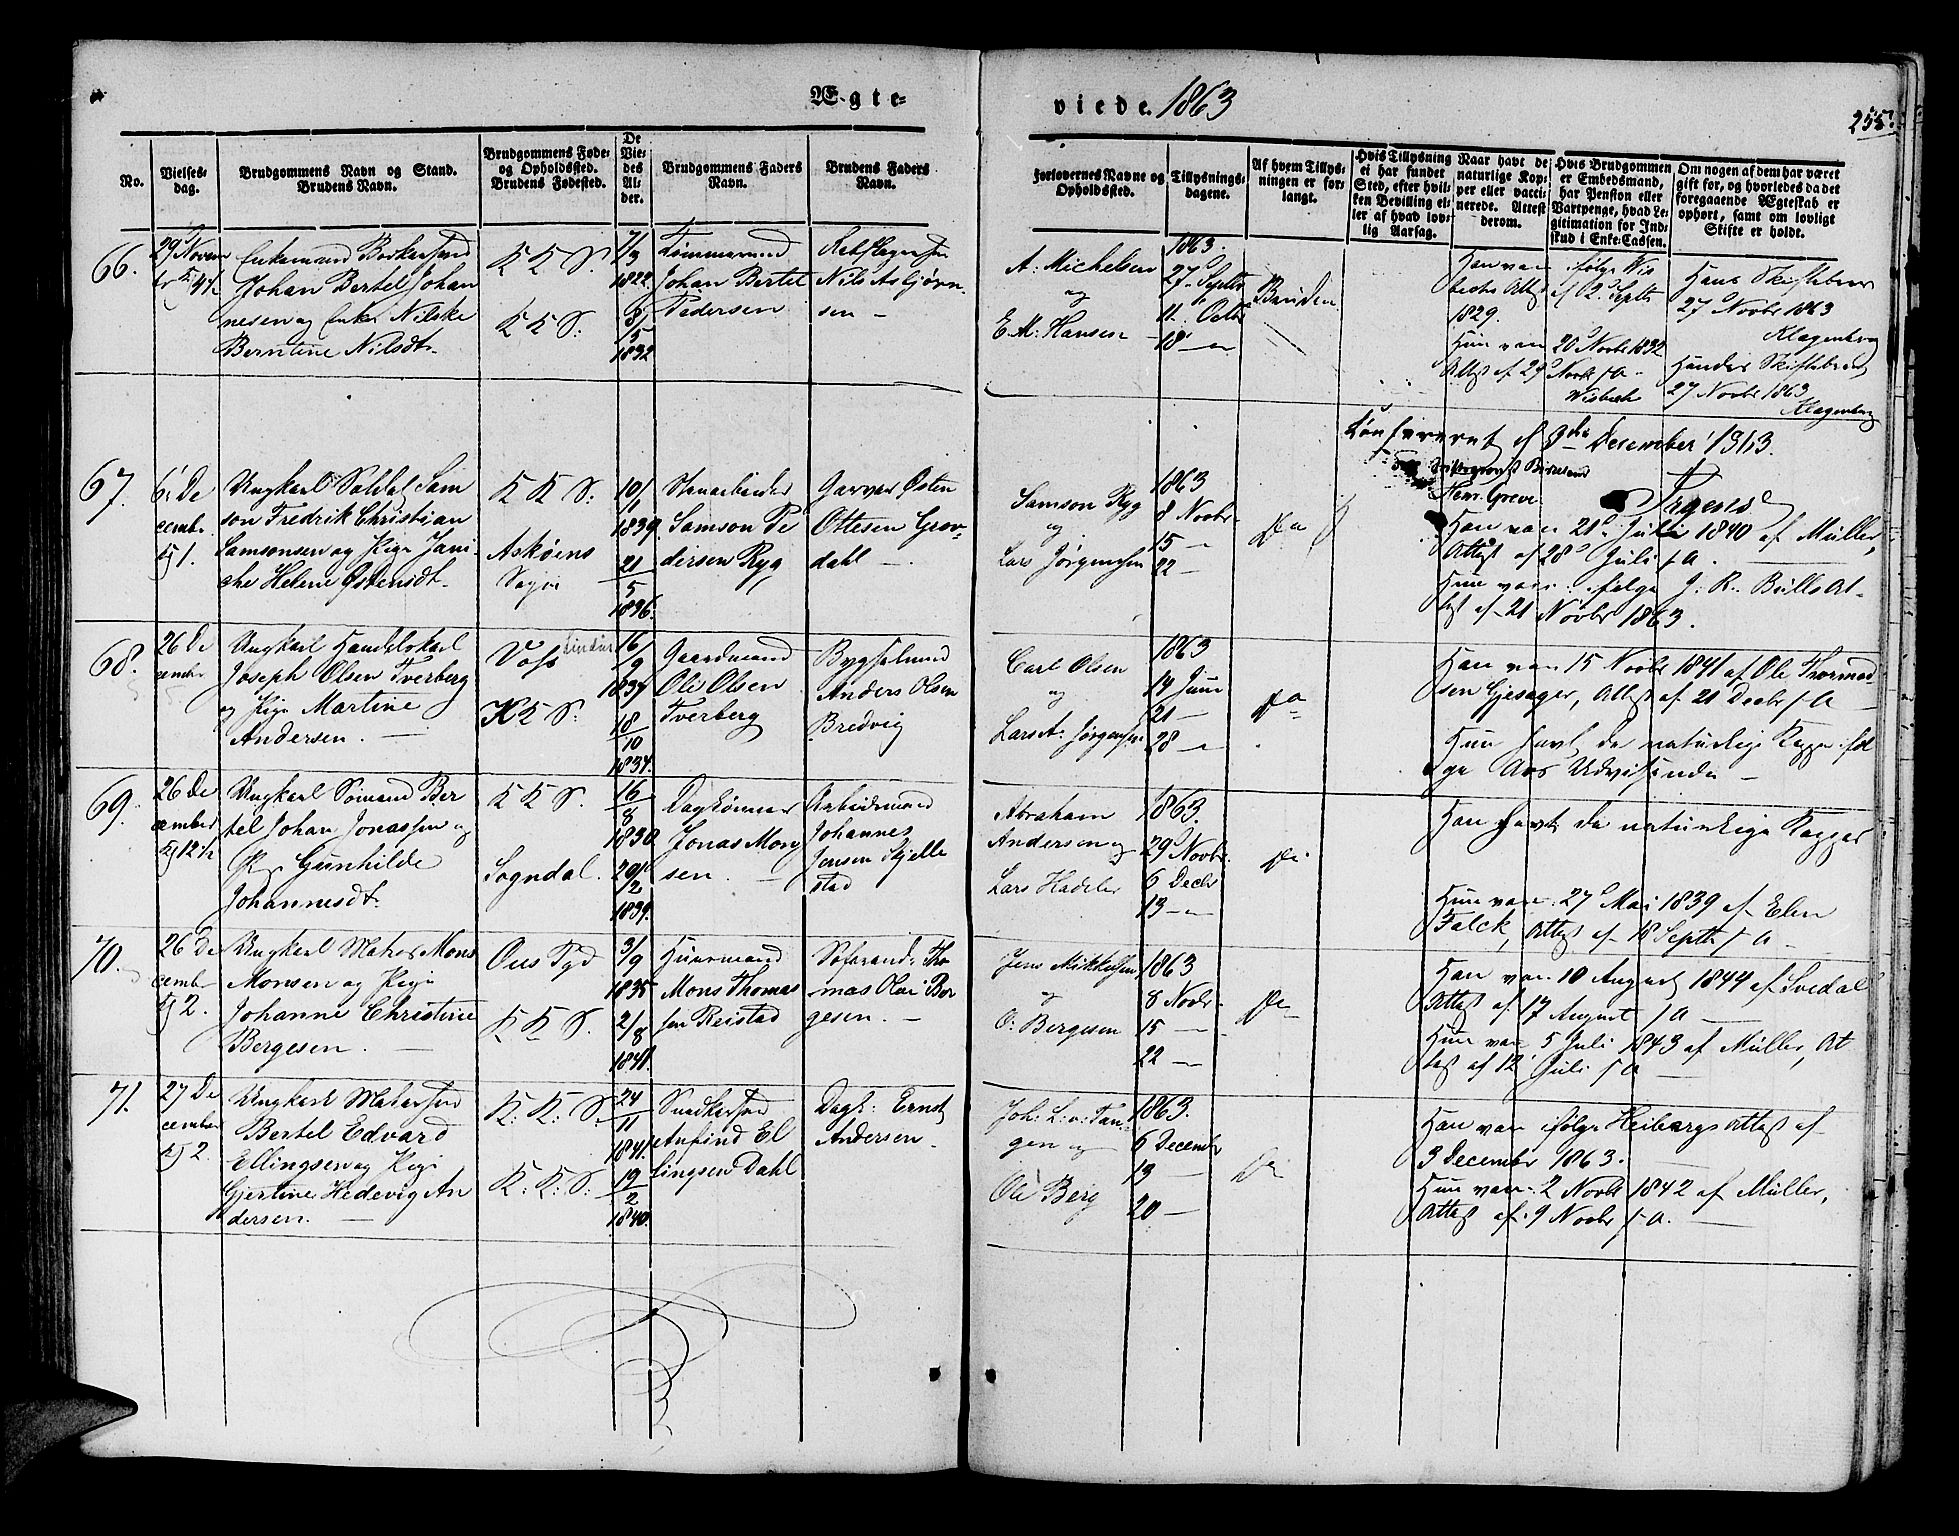 Ægte-
viede. 1863
255.
No.
Vielses-
dag.
Brudgommens Navn og Stand.
Brudens Navn.
Brudgommens Føde-
og Opholdssted.
Brudens Fødested.
De
Vie-
des
Al-
der.
Brudgommens Faders
Navn.
Brudens Faders
Navn.
Forlovernes Navne og
Opholdssted.
Tillysnings-
dagene.
Af hvem Tillys-
ningen er for-
langt.
Hvis Tillysning
ei har fundet
Sted, efter hvil-
ken Bevilling el-
ler af hvad lov-
lig Aarsag.
Naar havt de
naturlige Kop-
per eller vacci-
nerede. Attest
derom.
Hvis Brudgommen
er Embedsmand,
har Pension eller
Vartpenge, hvad Le-
gitimation for Ind-
skud i Enke-Cassen.
Om nogen af dem har været
gift før, og hvorledes da det
foregaaende Ægteskab er
ophørt, samt om lovligt
Skifte er holdt.
66.
29 Novem
br
Enkemand
Johan Bertel Johan
nesen og Enke Nilske
Berntine Nilsdt.
K K S.
K K S.
7/3
1822
8/5
1832
Tømmermand
Johan Bertel
Pedersen
Nils Asbjørn-
sen
A. Michelsen
og
E. M. Hansen
1863.
27 Septbr
11 Octbr
18
Bruden
Han var ifølge Wis
bechs Attest af 2 Septbr
1829.
Hun var 20 Novbr 1832
Attest af 29 Novbr s. A.
Wisbech
Hans Skiftebrev
27 Novbr 1863
Klagenberg
Hendes Skiftebrev
27 Novbr 1863
Klagenberg
Confereret d 9de Desember 1913.
Henr. Greve.
67.
6 De
cember
Kl 1.
Ungkarl Soldat Sam
son Fredrik Christian
Samsonsen og Pige Jani-
che Helene Østensdt.
K K S.
Askøens
Sogn
10/1
1839.
21/5
1836.
Stenarbeider
Samson Pe
dersen Ryg
Garver Østen
Ottesen Grov-
dahl
Samson Ryg
og
Lars Jørgensen
1863
8 Novbr
15
22
Do
Han var 21 Juli 1840 af Müller,
Attest af 28 Juli s. A.
Hun var ifølge J. R. Bulls At-
test af 21 Novbr 1863.
68.
26 De
cember
Ungkarl Handelskarl
Joseph Olsen Tverberg
og Pige Martine
Andersen.
Voss
K K S.
16/9
1837
18/10
1837.
Gaardmand
Ole Olsen
Tverberg
Bygselmand
Anders Olsen
Bredvig
Carl Olsen
og
Lars A. Jørgensen
1863
14 Juni
21
28
Do
Han var 15 Novbr 1841 af Ole Thormod-
sen Gjesager, Attest af 21 Decbr s. A.
Hun havt de naturlige Kopper iføl
ge Ars Udvisende
69.
26 De
cember
Kl 12 1/2
Ungkarl Sømand Ber
tel Johan Jonassen og
P. Gunhilde
Johannesdt.
K K S.
Sogndal.
16/8
1830
20/2
1839.
Daglønner
Jonas Mon
sen.
Arbeidsmand
Johannes
Jensen Skjelle
stad
Abraham
Andersen og
Lars Hadeler
1863.
29 Novbr
6 Decbr
13
Do
Han havt de naturlige Kopper
Hun var 27 Mai 1839 af Elen
Falck, Attest af 18 Septb s. A.
70.
26 De
cember
Kl 2.
Ungkarl Matros Mons
Monsen og Pige
Johanne Christine
Bergesen.
Ous Pgd
K K S.
3/9
1835
2/8
1841.
Huusmand
Mons Thomas
sen Reistad
Søfarende Tho
mas Olai Ber
gesen.
Jens Mikkelsen
og
O. Bergesen
1863
8 Novbr
15
22
Do
Han var 10 August 1844 af Svedal
Attest af 17 August s. A.
Hun var 5 Juli 1843 af Müller, At
test af 12 Juli s. A.
71.
27 De
cember
Kl 2.
Ungkarl
Bertel Edvard
Ellingsen og Pige
Gjertine Hedevig An
dersen.
K. K. S.
K. K. S.
24/11
1841.
19/2
1840.
Snedkersvend
Anfind El
lingsen Dahl
Dagl. Ernst
Andersen.
Joh. L. v. Tan-
gen og
Ole Berg
1863.
6 Decembr
13
20
Do
Han var ifølge Heibergs Attest af
3 December 1863.
Hun var 2 Novbr 1842 af Müller,
Attest af 9 Novbr s. A.